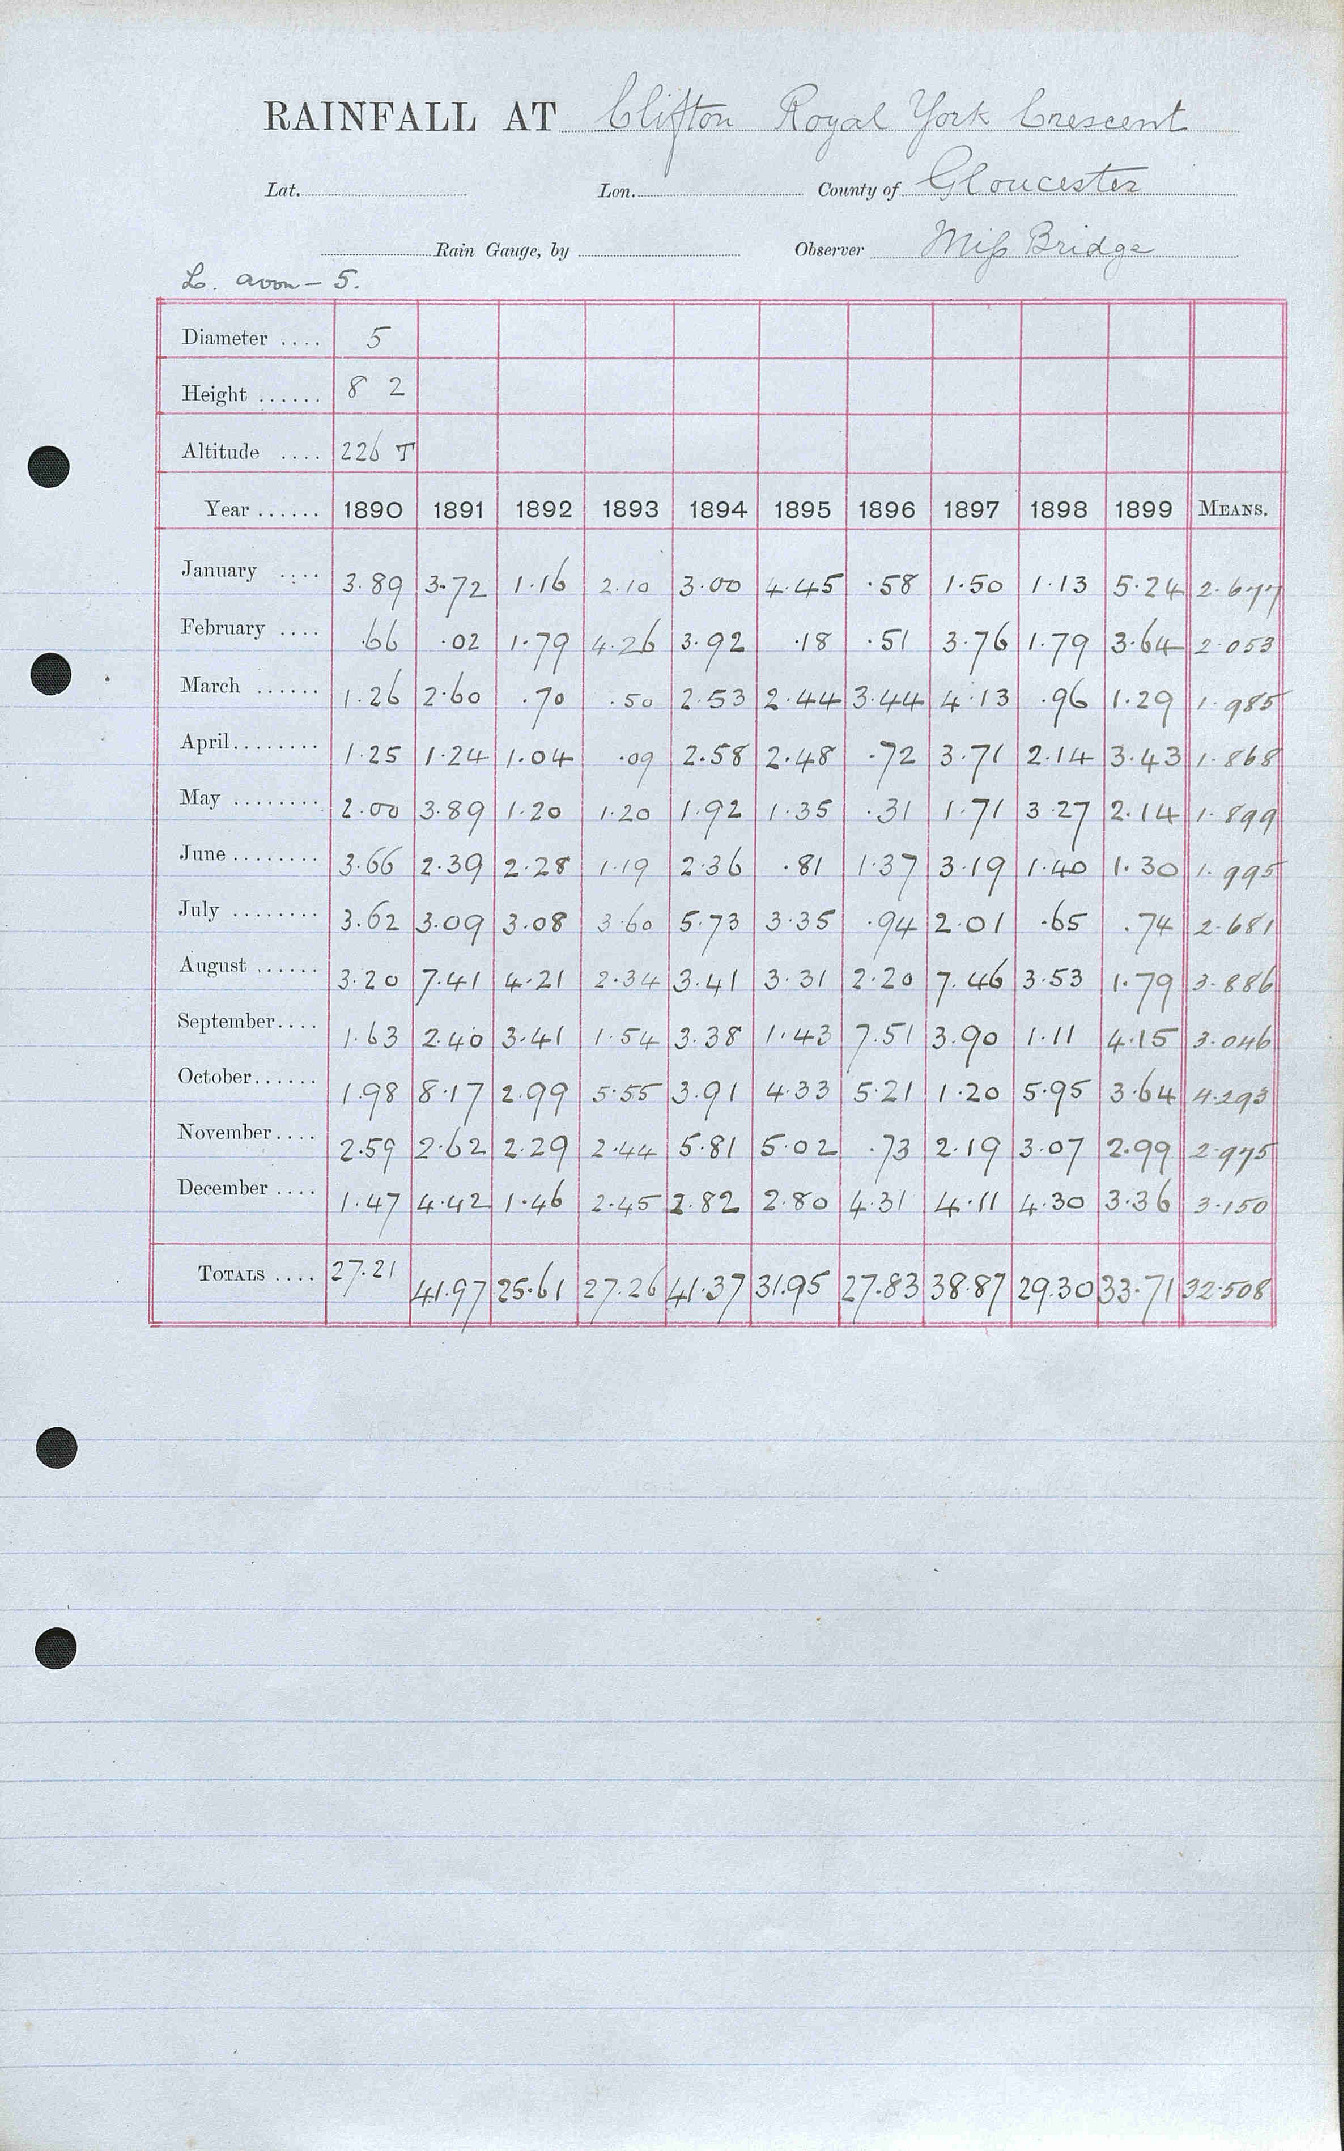 RAINFALL AT Clifton Royal York Crescent
Lat. Lon. County of Gloucester
Rain Gauge, by Observer Miss Bridge
L. Avon - 5.
Diameter .... 5
Height ...... 8 2
Altitude .... 226 T
Year ...... 1890 1891 1892 1893 1894 1895 1896 1897 1898 1899 MEANS.
January .... 3.89 3.72 1.16 2.10 3.00 4.45 .58 1.50 1.13 5.24 2.677
February .... .66 .02 1.79 4.26 3.92 .18 .51 3.76 1.79 3.64 2.053
March ...... 1.26 2.60 .70 .50 2.53 2.44 3.44 4.13 .96 1.29 1.985
April........ 1.25 1.24 1.04 .09 2.58 2.48 .72 3.71 2.14 3.43 1.868
May ........ 2.00 3.89 1.20 1.20 1.92 1.35 .31 1.71 3.27 2.14 1.899
June ........ 3.66 2.39 2.28 1.19 2.36 .81 1.37 3.19 1.40 1.30 1.995
July ........ 3.62 3.09 3.08 3.60 5.73 3.35 .94 2.01 .65 .74 2.681
August ...... 3.20 7.41 4.21 2.34 3.41 3.31 2.20 7.46 3.53 1.79 3.886
September.... 1.63 2.40 3.41 1.54 3.38 1.43 7.51 3.90 1.11 4.15 3.046
October...... 1.98 8.17 2.99 5.55 3.91 4.33 5.21 1.20 5.95 3.64 4.293
November.... 2.59 2.62 2.29 2.44 5.81 5.02 .73 2.19 3.07 2.99 2.975
December .... 1.47 4.42 1.46 2.45 2.82 2.80 4.31 4.11 4.30 3.36 3.150
TOTALS .... 27.21 41.97 25.61 27.26 41.37 31.95 27.83 38.87 29.30 33.71 32.508